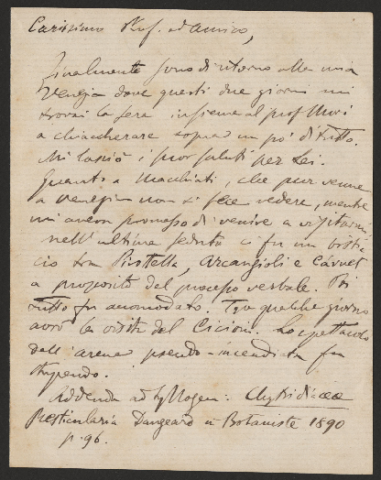 Carissimo Prof. ed amico,
finalmente sono di ritorno alla mia
Venezia dove questi due giorni mi
trovai la sera insieme al prof
a chiaccherare sopra un po' di tutto.
Mi lasciò i suoi saluti per Lei.
Quanto a Macchiati, che pur venne
a Venezia non si fece vedere, mentre
mi aveva promesso di venire a visitarmi
nell'ultima seduta ci fu un bistic
cio tra Pirotta, Arcangeli e Caruel
a proposito del processo verbale. Poi
tutto fu accomodato. Tra qualche giorno
avrò la visita del Cicioni. Lo spettacolo
dell'arena pseudo-incendiata fu
stupendo.
Addenda ad Syllogen: Chytridiaceae
Resticularia Dangeard in Botaniste 1890
p. 96.